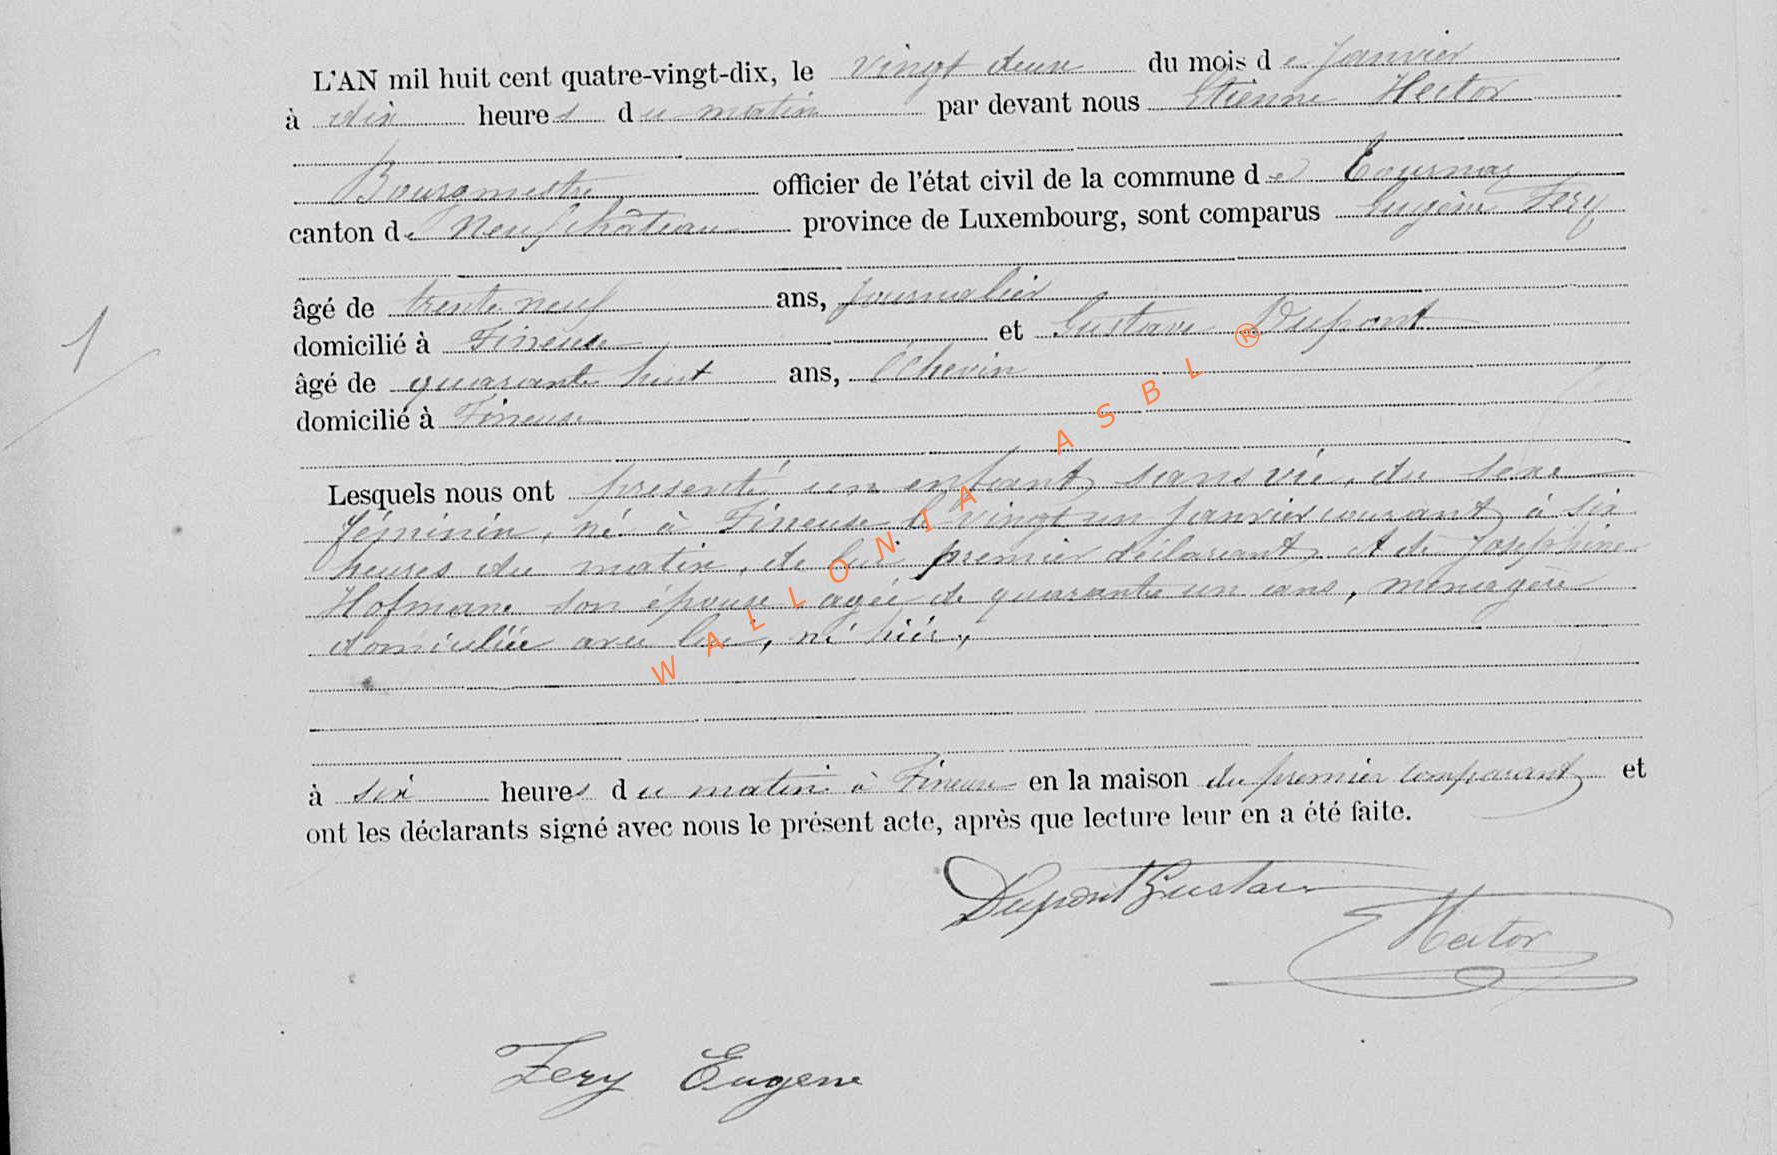 1
L'AN mil huit cent quatre-vingt-dix, le vingt deux du mois de Janvier
à dix heures du matin par devant nous Etienne Hector
Bourgmestre officier de l'état civil de la commune de Tournay
canton de Neufchâteau province de Luxembourg, sont comparus Eugène Fery
âgé de trente neuf ans, journalier
domicilié à Fineuse et Gustave Dupont
âgé de quarante huit ans, Echevin
domicilié à Fineuse
Lesquels nous ont présenté un enfant sans vie, du sexe
féminin, né à Fineuse le vingt un Janvier courant, à six
heures du matin, de lui premier déclarant, et de Joséphine
Hofmann son épouse agée de quarante un ans, ménagère
domiciliée avec lui, né hier,
à six heures du matin à Fineuse en la maison du premier comparant et
ont les déclarants signé avec nous le présent acte, après que lecture leur en a été faite.
Dupont Gustave
E Hector
Fery Eugene
WALLONIA ASBL ®